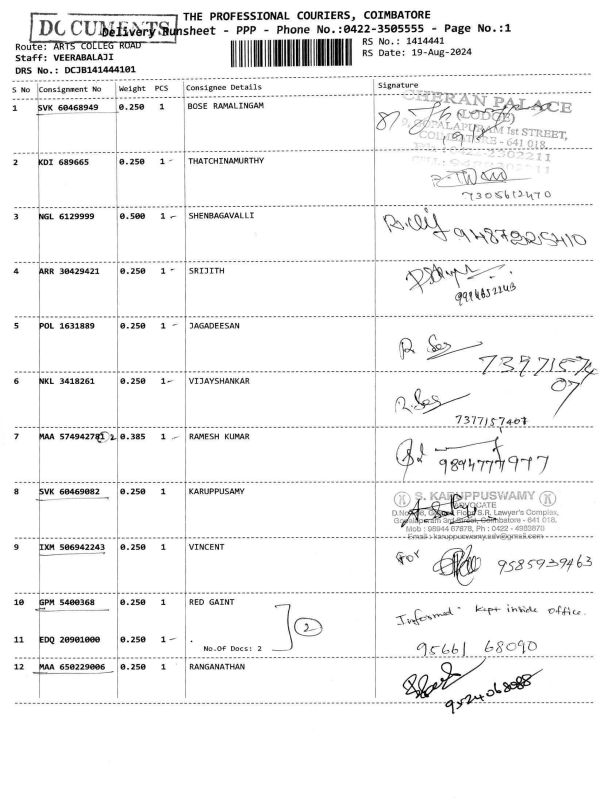 THE PROFESSIONAL COURIERS, COIMBATORE
DC CUMENTS
Delivery Runsheet - PPP - Phone No.:0422-3505555 - Page No.:1
Route: ARTS COLLEG ROAD
RS No.: 1414441
Staff: VEERABALAJI
RS Date: 19-Aug-2024
DRS No.: DCJB141444101
S No Consignment No Weight PCS Consignee Details Signature
1 SVK 60468949 0.250 1 BOSE RAMALINGAM
CHERAN PALACE
(LODGE)
GOPALAPURAM Ist STREET,
COIMBATORE - 641 018.
2 KDI 689665 0.250 1 THATCHINAMURTHY
7305612470
3 NGL 6129999 0.500 1 SHENBAGAVALLI
4 ARR 30429421 0.250 1 SRIJITH
5 POL 1631889 0.250 1 JAGADEESAN
7397157407
6 NKL 3418261 0.250 1 VIJAYSHANKAR
7377157407
7 MAA 574942781 2 0.385 1 RAMESH KUMAR
9894777977
8 SVK 60469082 0.250 1 KARUPPUSAMY
S. KARUPPUSWAMY
ADVOCATE
Floor S.R. Lawyer's Complex,
Gopalapuram 3rd Street, Coimbatore - 641 018.
Mob : 98944 67878, Ph : 0422 - 4983870
Email : karuppuswamy.adv@gmail.com
9 IXM 506942243 0.250 1 VINCENT
For 9585939463
10 GPM 5400368 0.250 1 RED GAINT
Informed. Kept inside office.
2
11 EDQ 20901000 0.250 1 .
No.Of Docs: 2
95661 68090
12 MAA 650229006 0.250 1 RANGANATHAN